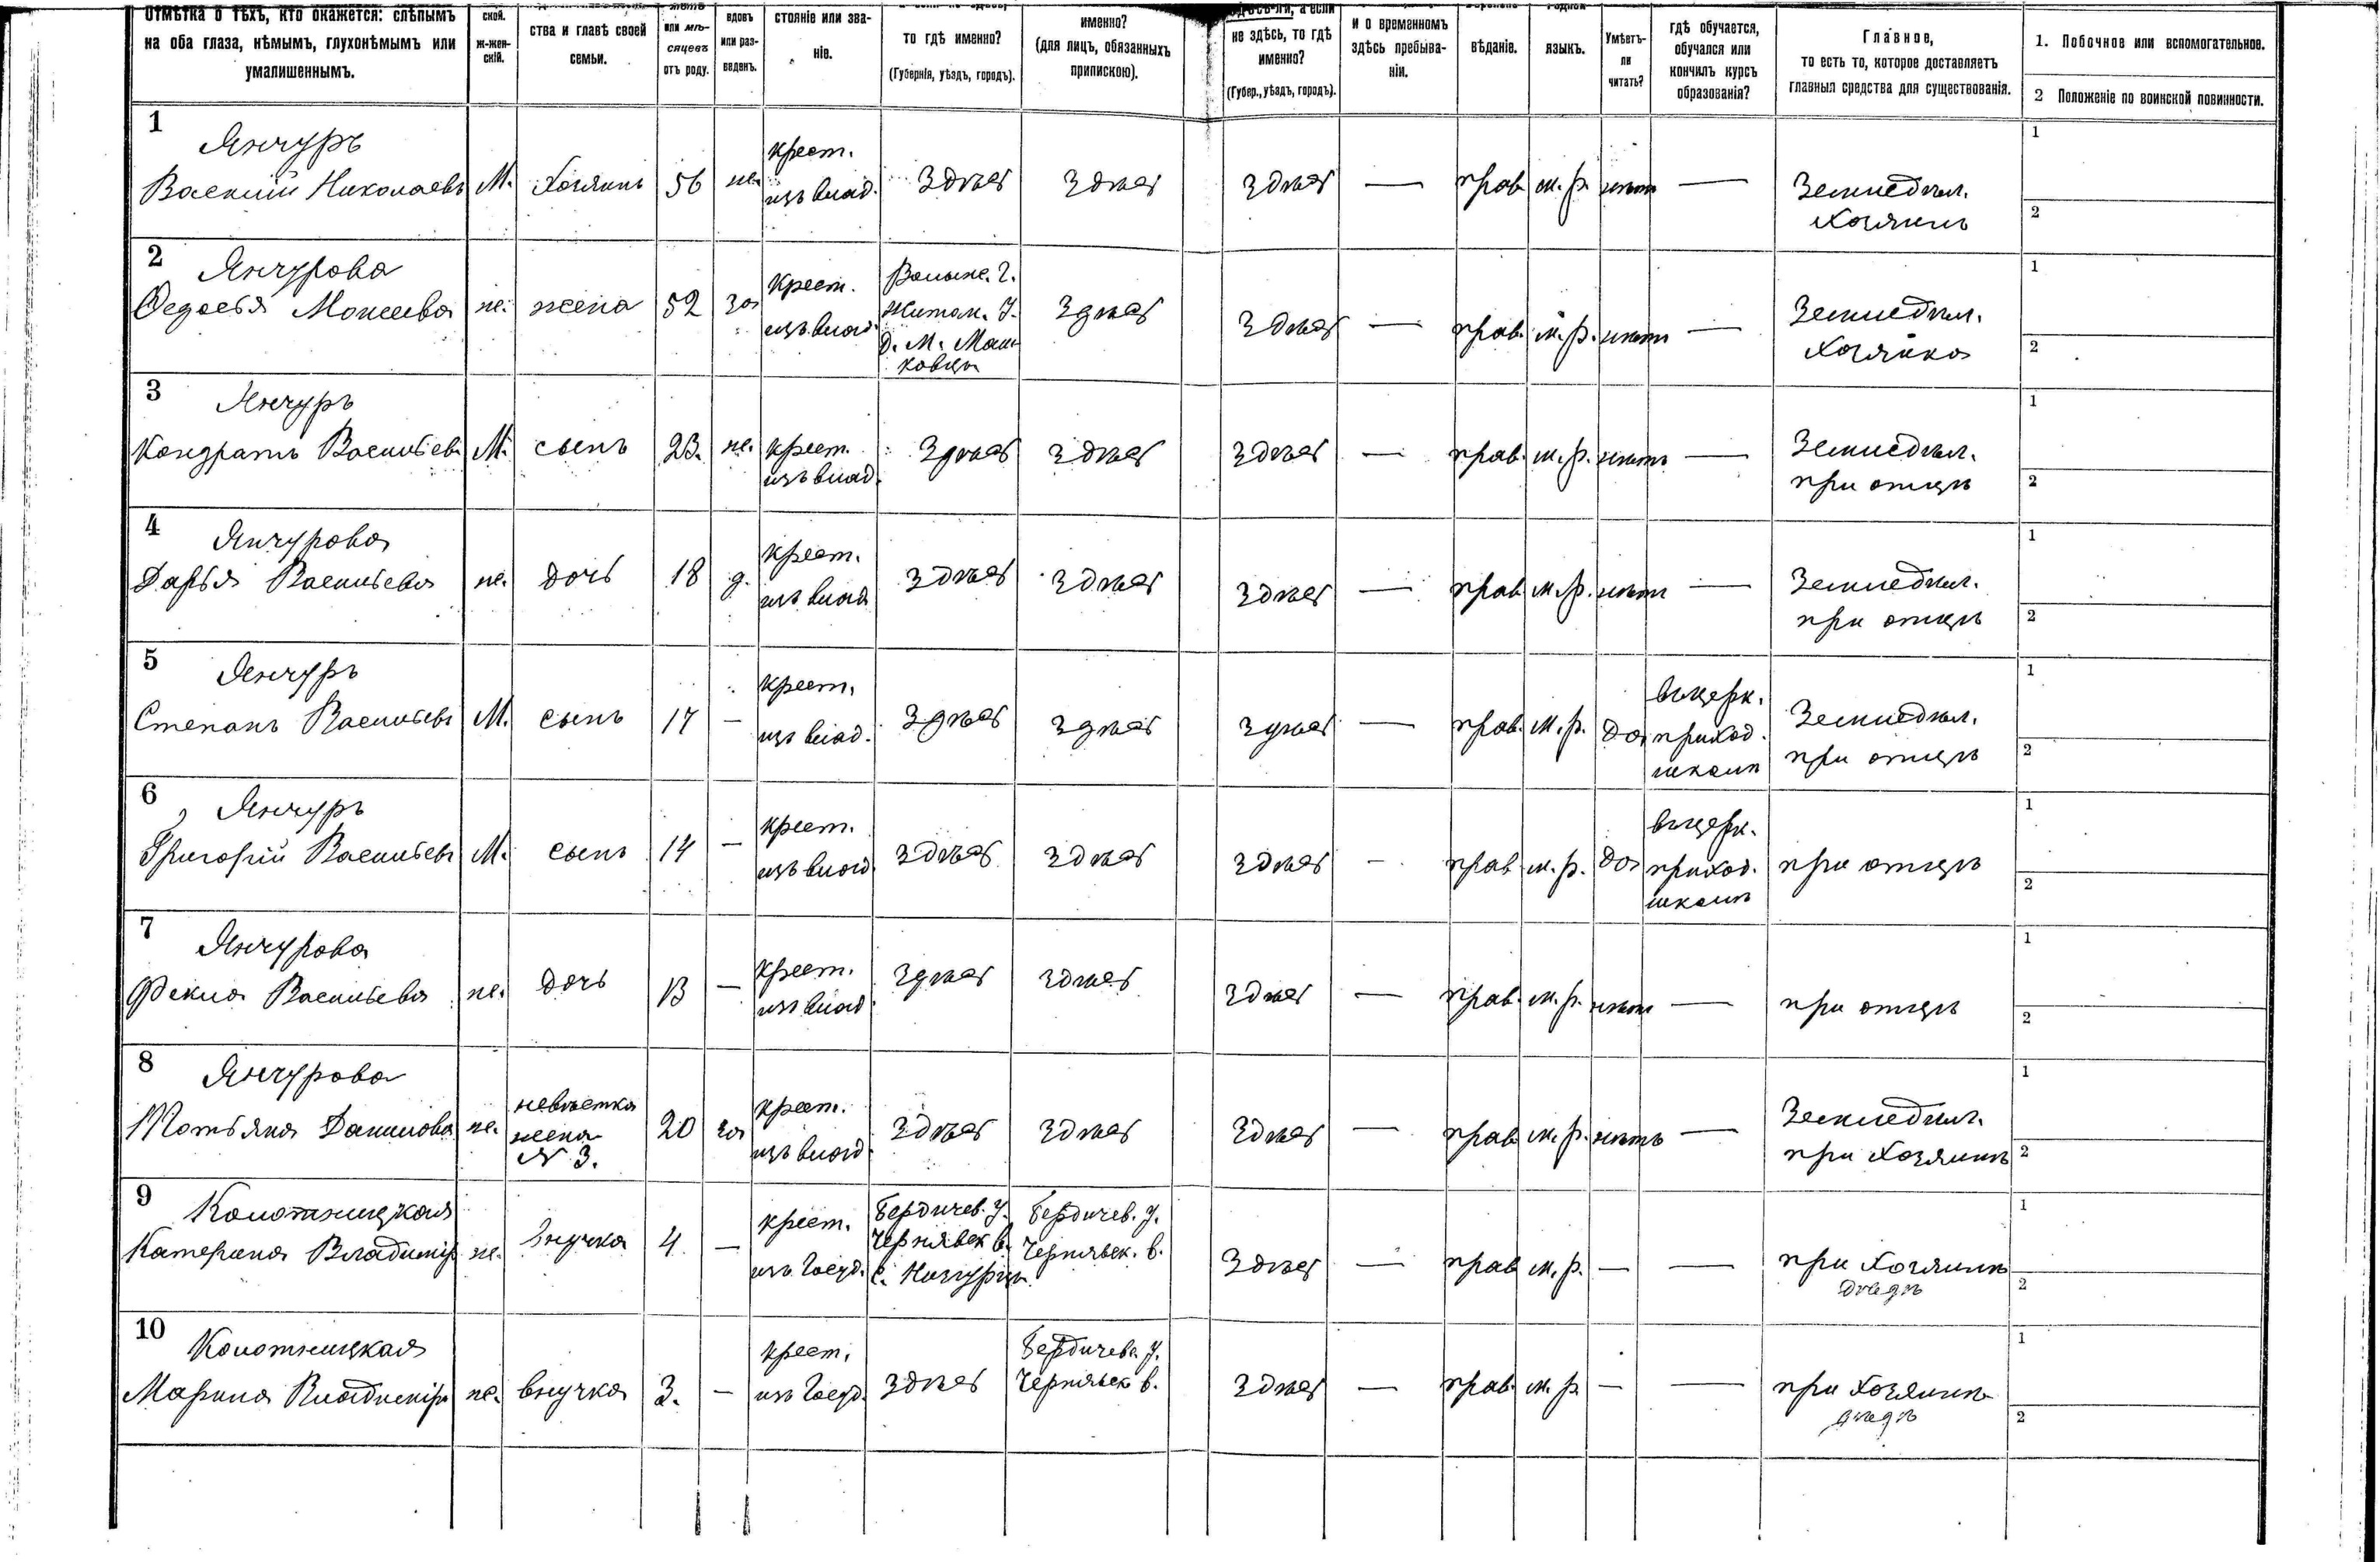 Отмѣтка о тѣхъ, кто окажется: слѣпымъ
на оба глаза, нѣмымъ, глухонѣмымъ или
умалишеннымъ.
ской.
ж-жен-
скій.
ства и главѣ своей
семьи.
или мѣ-
сяцевъ
отъ роду.
вдовъ
или раз-
веденъ.
стояніе или зва-
ніе.
то гдѣ именно?
(Губернія, уѣздъ, городъ).
именно?
(для лицъ, обязанныхъ
припискою).
здѣсь-ли, а если
не здѣсь, то гдѣ
именно?
(Губер., уѣздъ, городъ).
и о временномъ
здѣсь пребыва-
ніи.
вѣданіе.
языкъ.
Умѣетъ-
ли
читать?
гдѣ обучается,
обучался или
кончилъ курсъ
образованія?
Главное,
то есть то, которое доставляетъ
главныя средства для существованія.
1. Побочное или вспомогательное.
2 Положеніе по воинской повинности.
1
Янчуръ
Василій Николаевъ
М.
Хозяинъ
56
же.
крест.
изъ влад.
Здѣсь
Здѣсь
Здѣсь
—
прав.
м. р.
нѣтъ
—
Земледѣл.
Хозяинъ
1
2
2
Янчурова
Федосья Моисеева
же.
жена
52
за
крест.
изъ влад.
Волынс. г.
Житом. у.
Здѣсь
Здѣсь
—
прав.
м. р.
нѣтъ
—
Земледѣл.
Хозяйка
1
2
3
Янчуръ
Кондратъ Васильев.
М.
сынъ
23.
же.
крест.
изъ влад.
Здѣсь
Здѣсь
Здѣсь
—
прав.
м. р.
нѣтъ
—
Земледѣл.
при отцѣ
1
2
4
Янчурова
Дарья Васильева
же.
дочь
18
д.
крест.
изъ влад
Здѣсь
Здѣсь
Здѣсь
—
прав
м. р.
нѣтъ
—
Земледѣл.
при отцѣ
1
2
5
Янчуръ
Степанъ Васильевъ
М.
сынъ
17
—
крест.
изъ влад.
Здѣсь
Здѣсь
Здѣсь
—
прав.
м. р.
да
въ церк.
приход.
школѣ
Земледѣл.
при отцѣ
1
2
6
Янчуръ
Григорій Васильевъ
М.
сынъ
14
—
крест.
изъ влад.
Здѣсь
Здѣсь
Здѣсь
—
прав
м. р.
да
въ церк.
приход.
школѣ
при отцѣ
1
2
7
Янчурова
Фекла Васильева
же.
дочь
13
—
крест.
изъ влад
Здѣсь
Здѣсь
Здѣсь
—
прав.
м. р.
нѣтъ
—
при отцѣ
1
2
8
Янчурова
Татьяна Данилова
же.
невѣстка
жена
№ 3.
20
за
крест.
изъ влад
Здѣсь
Здѣсь
Здѣсь
—
прав.
м. р.
нѣтъ
—
Земледѣл.
при Хозяинѣ
1
2
9
Катерина Владимір
же.
внучка
4
—
крест.
изъ Госуд.
Бердичев. у.
Чернявск в.
Бердичев. у.
Чернявск. в.
Здѣсь
—
прав
м. р.
—
—
при Хозяинѣ
дѣдѣ
1
2
10
Марина Владимір
же.
внучка
3.
—
крест.
изъ Госуд.
Здѣсь
Бердичев. у.
Чернявск в.
Здѣсь
—
прав.
м. р
—
—
при Хозяинѣ
дѣдѣ
1
2